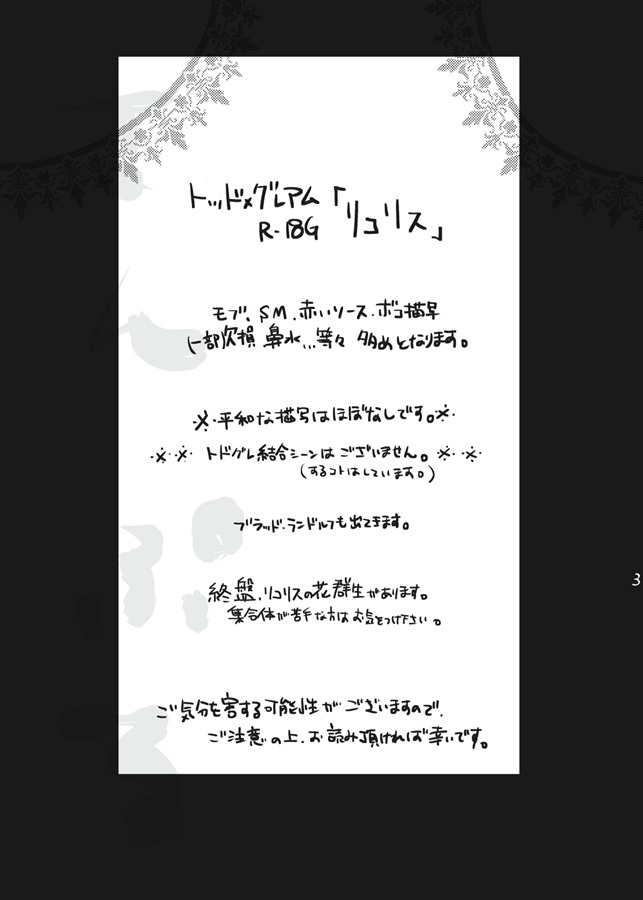 トッド×グレアム「リコリス」
R-18G
モブ、SM、赤いソース、ボコ描写
一部欠損 鼻水…等々 多めとなります。
※平和な描写はほぼなしです。※
※※ トドグレ結合シーンはございません。※※
(するコトはしています。)
ブラッド・ランドルフも出てきます。
終盤、リコリスの花群生があります。
集合体が苦手な方はお気をつけ下さい。
ご気分を害する可能性がございますので、
ご注意の上、お読み頂ければ幸いです。
3